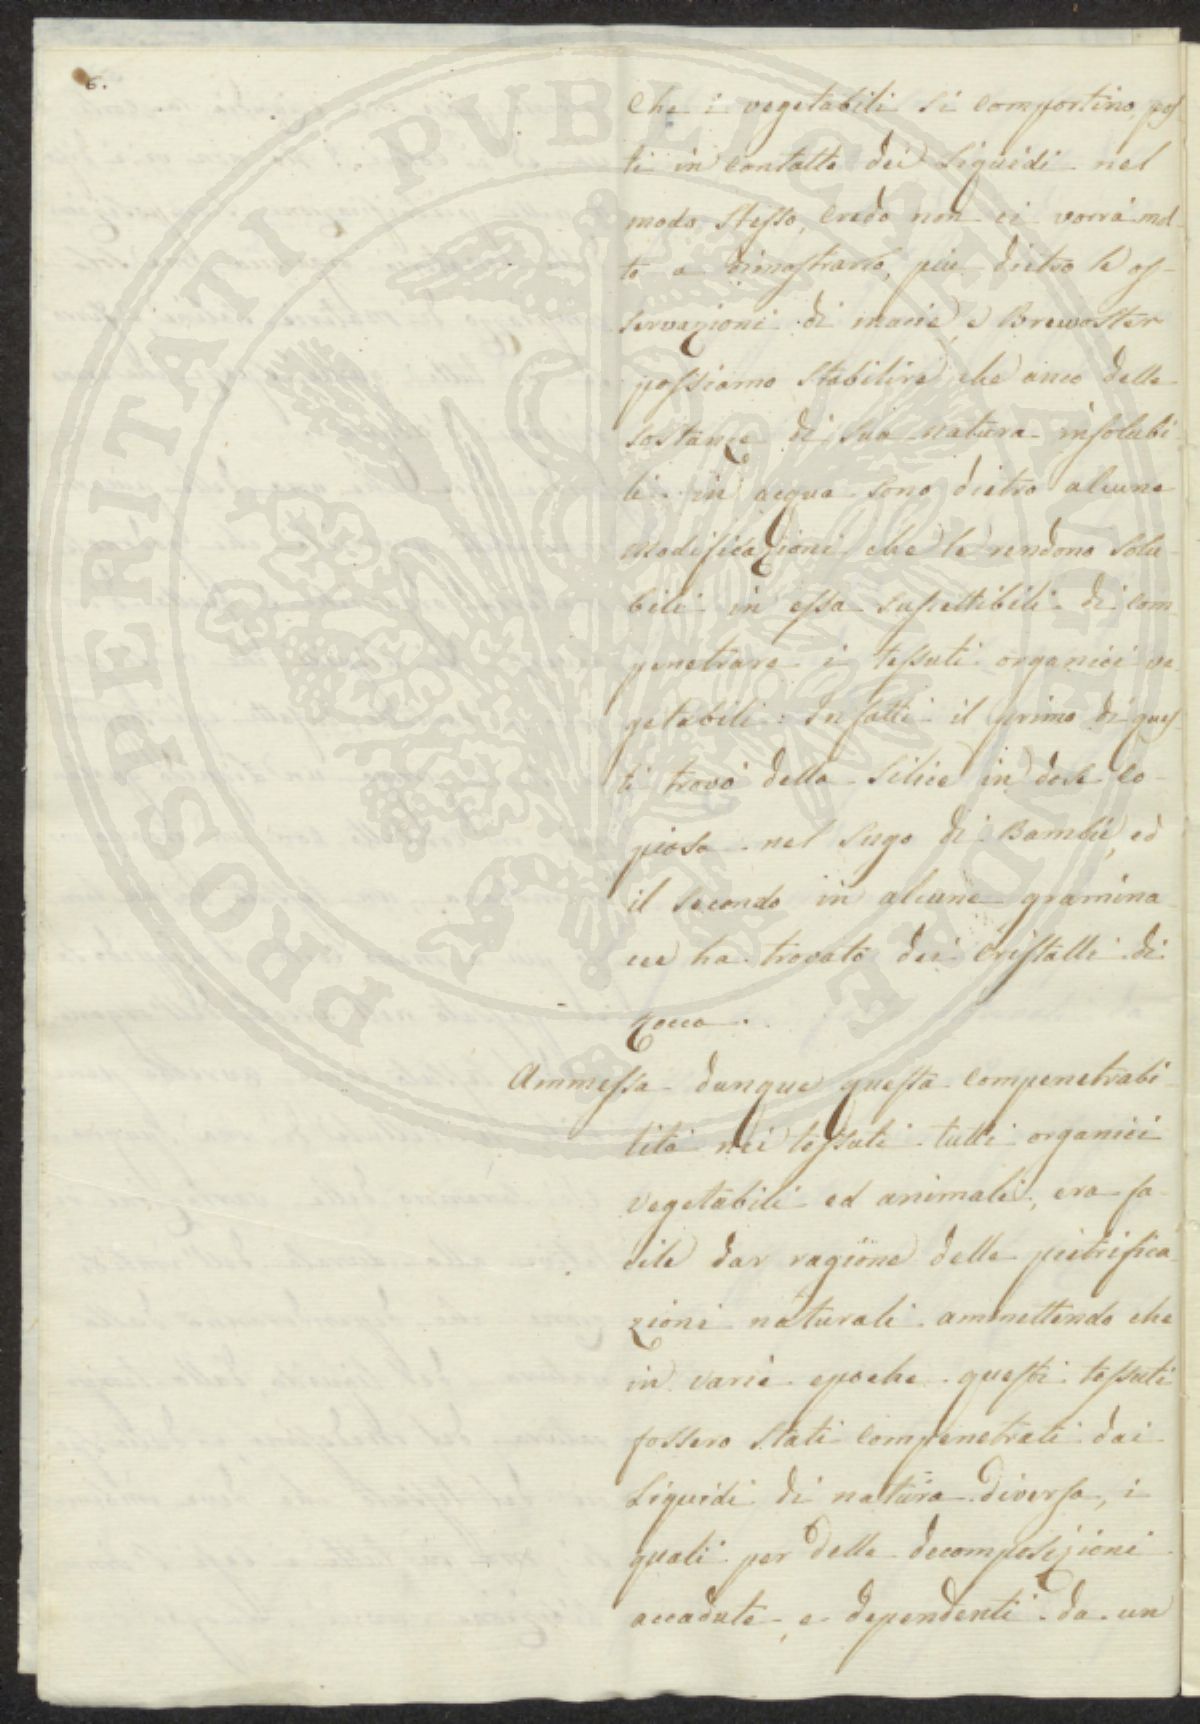 6.
Che i vegetabili si comportino, pos-
ti in contatto dei Liquidi nel
modo stesso, credo non ci vorrà mol-
to a dimostrarlo, più dietro le os-
servazioni di Macie, e Brewoster
possiamo stabilire, che anco delle
sostanze di sua natura insolubi-
li in acqua sono, dietro alcune
modificazioni che le rendono solu-
bili in essa suscettibili di com-
penetrare i tessuti organici ve-
getabili: Infatti il primo di ques-
ti trovò della Silice in dose co-
piosa nel Sugo di Bambù, ed
il secondo in alcune gramina-
cee ha trovato dei Cristalli di
rocca.
Ammessa dunque questa compenetrabi-
lità nei tessuti tutti organici
vegetabili ed animali, era fa-
cile dar ragione delle pietrifica-
zioni naturali ammettendo che
in varie epoche questi tessuti
fossero stati compenetrati dai
Liquidi di natura diversa, i
quali per delle decomposizioni
accadute, e dependenti da un
PROSPERITATI PUBLICAE AUGENDAE